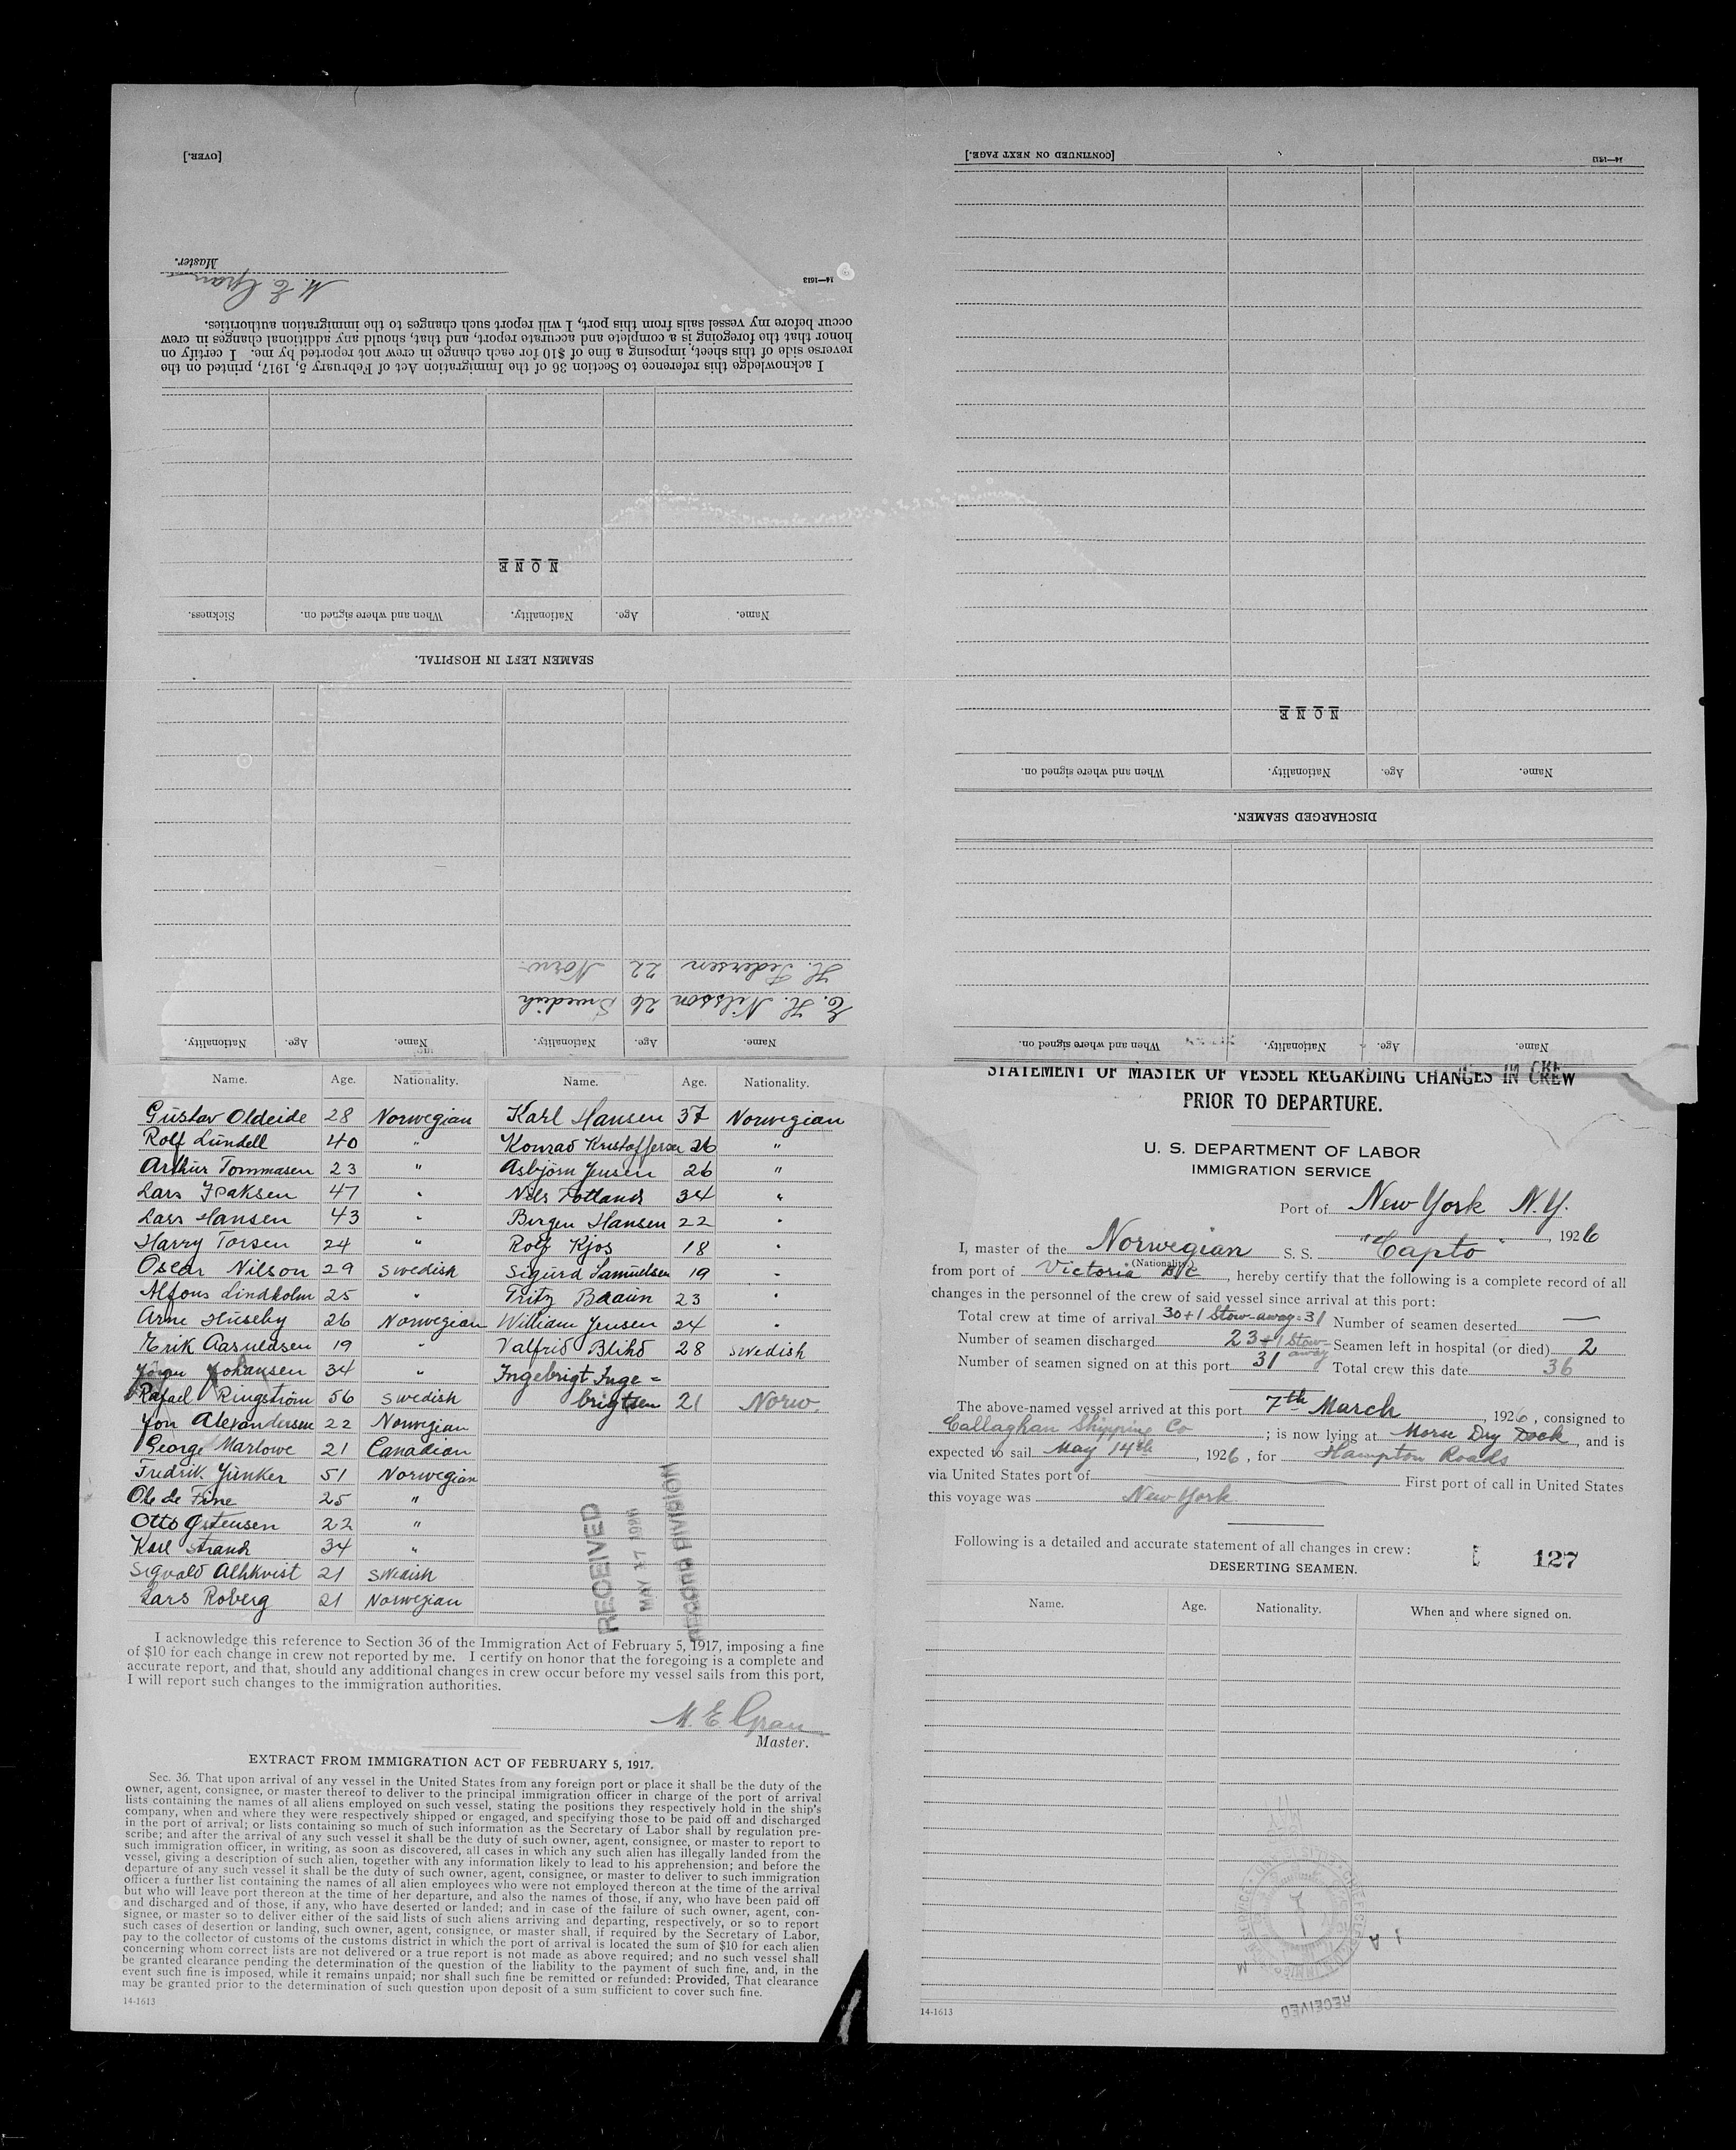 [OVER.]
14—1613
Master.
M. E. Gran
I acknowledge this reference to Section 36 of the Immigration Act of February 5, 1917, printed on the
reverse side of this sheet, imposing a fine of $10 for each change in crew not reported by me. I certify on
honor that the foregoing is a complete and accurate report, and that, should any additional changes in crew
occur before my vessel sails from this port, I will report such changes to the immigration authorities.
NONE
Name. Age. Nationality. When and where signed on. Sickness.
SEAMEN LEFT IN HOSPITAL.
H. Pedersen 22 Norw.
E. H. Nilsson 26 Swedish
Name. Age. Nationality. Name. Age. Nationality.
[CONTINUED ON NEXT PAGE.]
14—1613
NONE
Name. Age. Nationality. When and where signed on.
DISCHARGED SEAMEN.
Name. Age. Nationality. When and where signed on.
Name. Age. Nationality. Name. Age. Nationality.
Gustav Oldeide 28 Norwegian Karl Hansen 37 Norwegian
Rolf Lundell 40 " Konrad Kristoffersen 26 "
Arthur Tommasen 23 " Asbjörn Jensen 26 "
Lars Isaksen 47 " Nils Totland 34 "
Lars Hansen 43 " Birger Hansen 22 "
Harry Torsen 24 " Rolf Kjos 18 "
Oscar Nilson 29 Swedish Sigurd Samuelsen 19 "
Alfons Lindholm 25 " Fritz Braaun 23 "
Arne Huseby 26 Norwegian William Jensen 24 "
Erik Aasuldsen 19 " Valfrid Blihd 28 Swedish
Jörgen Johansen 34 " Ingebrigt Inge=
Rafael Ringström 56 Swedish brigtsen 21 Norw.
Jon Alexandersen 22 Norwegian
George Marlowe 21 Canadian
Fredrik Junker 51 Norwegian
Ole de Fine 25 "
Otto Ostensen 22 "
Karl Strand 34 "
Sigvald Alhkvist 21 Swedish
Lars Roberg 21 Norwegian
RECEIVED
MAY 17 1926
RECORD DIVISION
I acknowledge this reference to Section 36 of the Immigration Act of February 5, 1917, imposing a fine
of $10 for each change in crew not reported by me. I certify on honor that the foregoing is a complete and
accurate report, and that, should any additional changes in crew occur before my vessel sails from this port,
I will report such changes to the immigration authorities.
M. E. Gran
Master.
EXTRACT FROM IMMIGRATION ACT OF FEBRUARY 5, 1917.
Sec. 36. That upon arrival of any vessel in the United States from any foreign port or place it shall be the duty of the
owner, agent, consignee, or master thereof to deliver to the principal immigration officer in charge of the port of arrival
lists containing the names of all aliens employed on such vessel, stating the positions they respectively hold in the ship's
company, when and where they were respectively shipped or engaged, and specifying those to be paid off and discharged
in the port of arrival; or lists containing so much of such information as the Secretary of Labor shall by regulation pre-
scribe; and after the arrival of any such vessel it shall be the duty of such owner, agent, consignee, or master to report to
such immigration officer, in writing, as soon as discovered, all cases in which any such alien has illegally landed from the
vessel, giving a description of such alien, together with any information likely to lead to his apprehension; and before the
departure of any such vessel it shall be the duty of such owner, agent, consignee, or master to deliver to such immigration
officer a further list containing the names of all alien employees who were not employed thereon at the time of the arrival
but who will leave port thereon at the time of her departure, and also the names of those, if any, who have been paid off
and discharged and of those, if any, who have deserted or landed; and in case of the failure of such owner, agent, con-
signee, or master so to deliver either of the said lists of such aliens arriving and departing, respectively, or so to report
such cases of desertion or landing, such owner, agent, consignee, or master shall, if required by the Secretary of Labor,
pay to the collector of customs of the customs district in which the port of arrival is located the sum of $10 for each alien
concerning whom correct lists are not delivered or a true report is not made as above required; and no such vessel shall
be granted clearance pending the determination of the question of the liability to the payment of such fine, and, in the
event such fine is imposed, while it remains unpaid; nor shall such fine be remitted or refunded: Provided, That clearance
may be granted prior to the determination of such question upon deposit of a sum sufficient to cover such fine.
14-1613
STATEMENT OF MASTER OF VESSEL REGARDING CHANGES IN CREW
PRIOR TO DEPARTURE.
U. S. DEPARTMENT OF LABOR
IMMIGRATION SERVICE
Port of New York N.Y.
, 1926
I, master of the Norwegian S. S. "Capto"
(Nationality)
from port of Victoria BC, hereby certify that the following is a complete record of all
changes in the personnel of the crew of said vessel since arrival at this port:
Total crew at time of arrival 30+1 Stow-away=31 Number of seamen deserted —
Number of seamen discharged 23+1 Stow-away Seamen left in hospital (or died) 2
Number of seamen signed on at this port 31 Total crew this date 36
The above-named vessel arrived at this port 7th March, 1926, consigned to
Callaghan Shipping Co; is now lying at Morse Dry Dock, and is
expected to sail May 14th, 1926, for Hampton Roads
via United States port of First port of call in United States
this voyage was New York
Following is a detailed and accurate statement of all changes in crew:
127
DESERTING SEAMEN.
Name. Age. Nationality. When and where signed on.
RECEIVED
14-1613